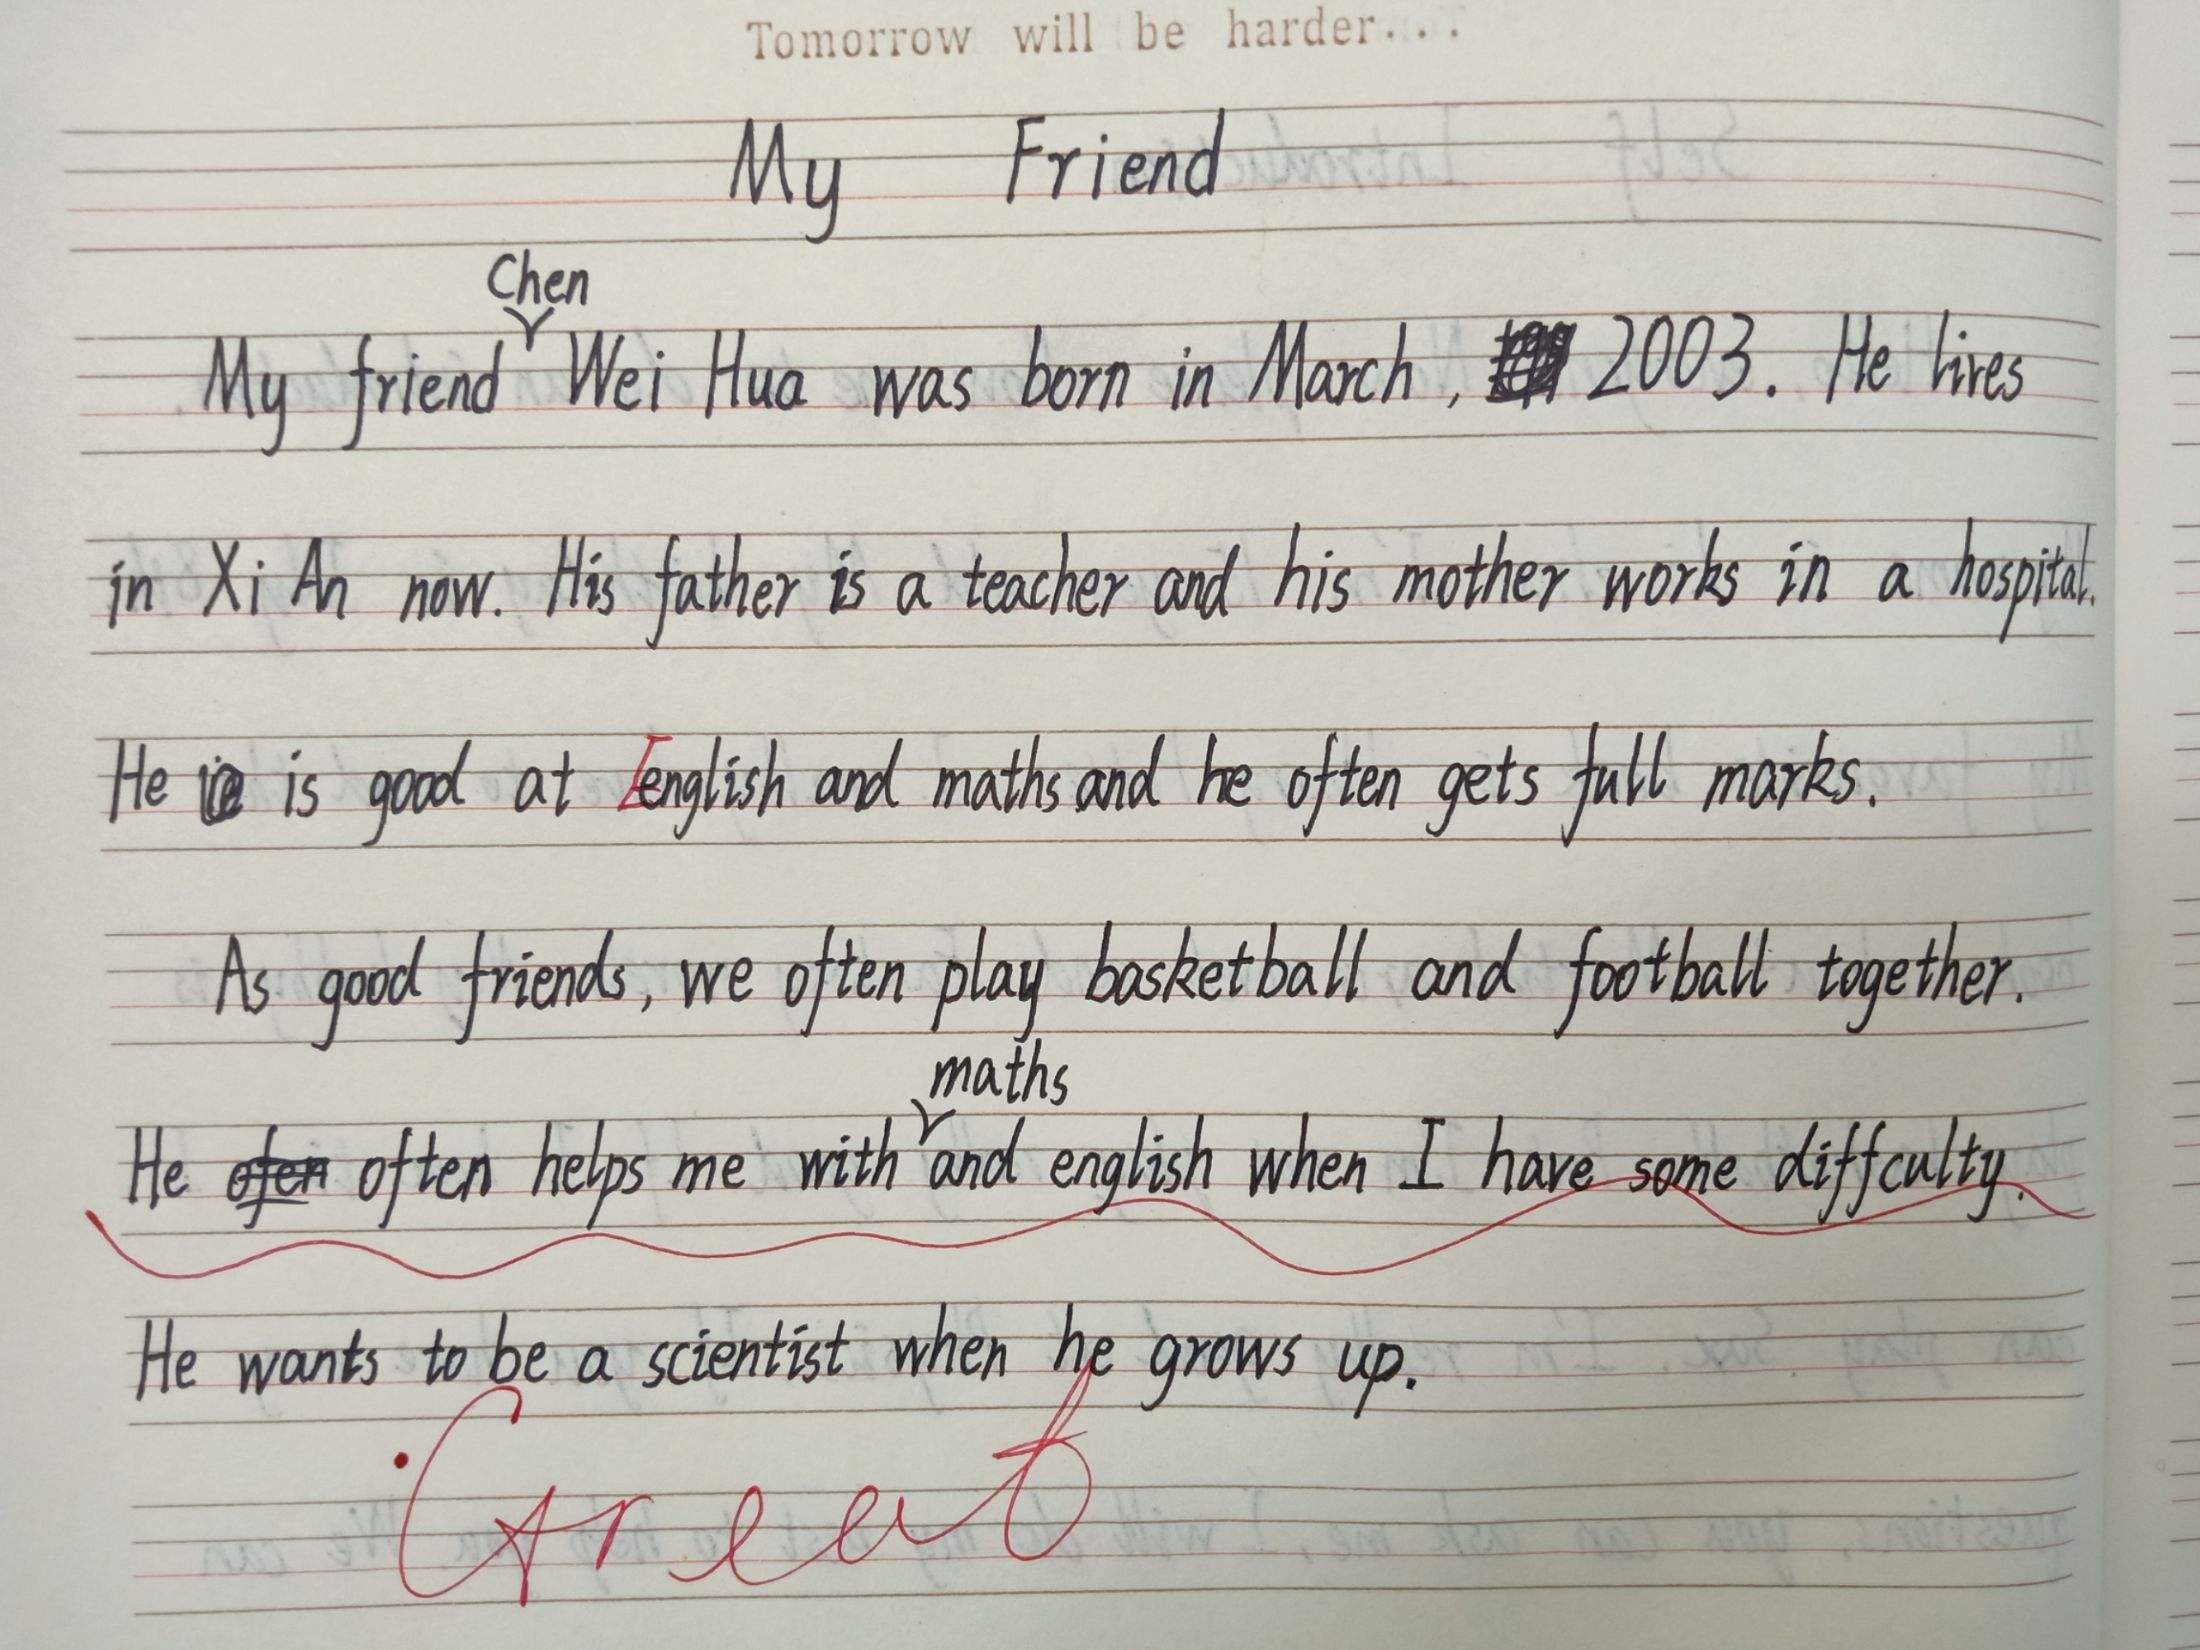 Tomorrow will be harder...
My Friend
Chen
My friend Wei Hua was born in March, 2003. He lives
in Xi An now. His father is a teacher and his mother works in a hospital.
He is good at English and maths and he often gets full marks.
As good friends, we often play basketball and football together.
maths
He ofen often helps me with and english when I have some diffculty.
He wants to be a scientist when he grows up.
Great